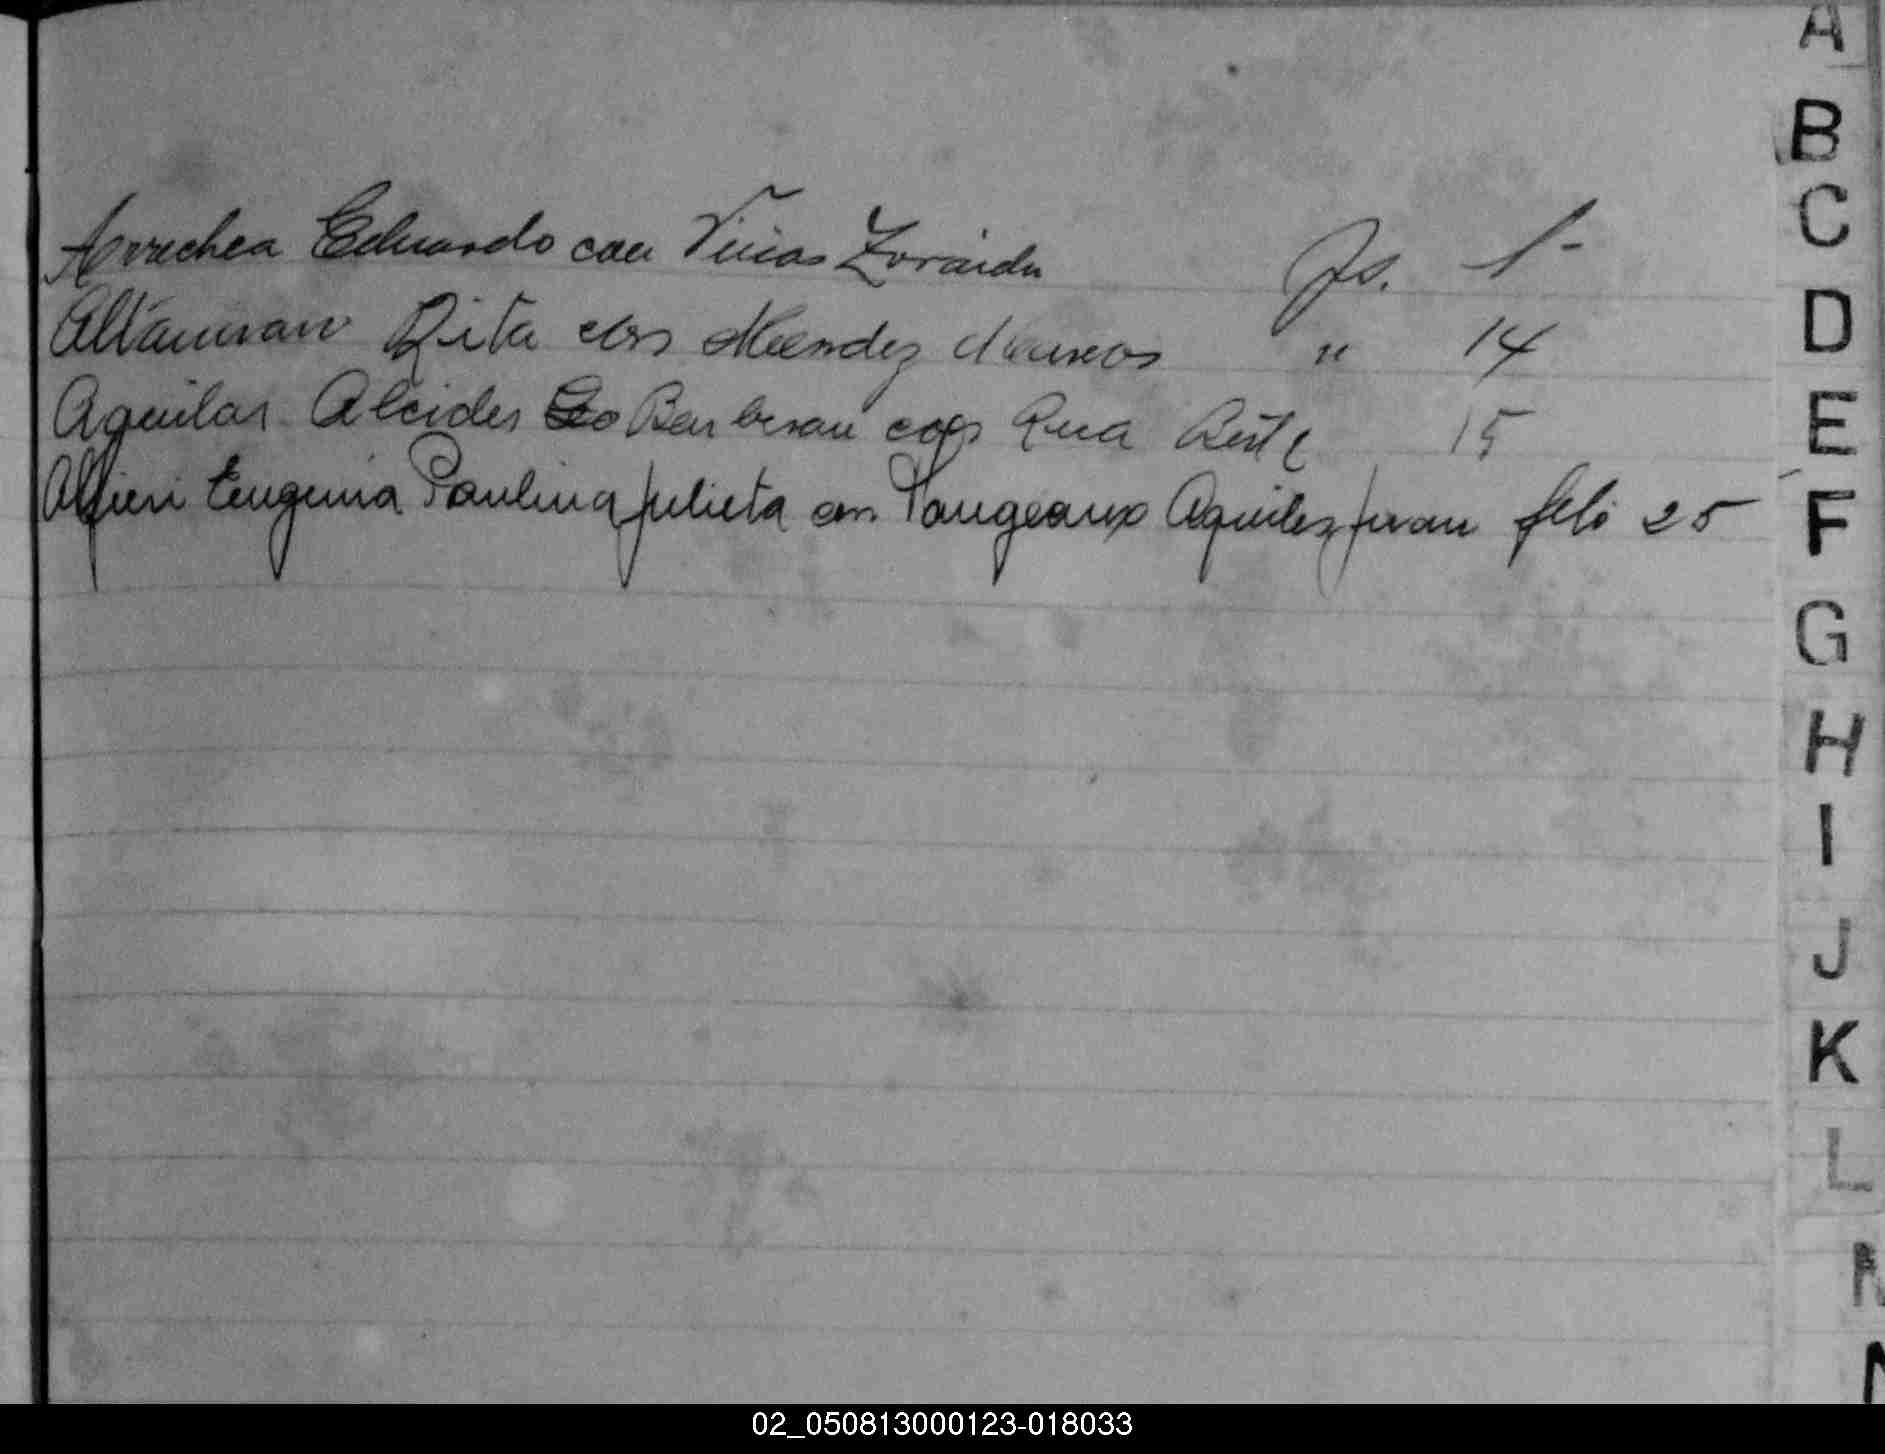 Arrechea Eduardo con Viñas Zoraida Fs. 1-
Altamiran Rita con Mendez Marcos " 14
Aguilar Alcides Barberan con Rua 15
Alfieri Eugenia Paulina Julieta con Tangeaux Aquiles Juan folio 25
A
B
C
D
E
F
G
H
I
J
K
L
02_050813000123-018033